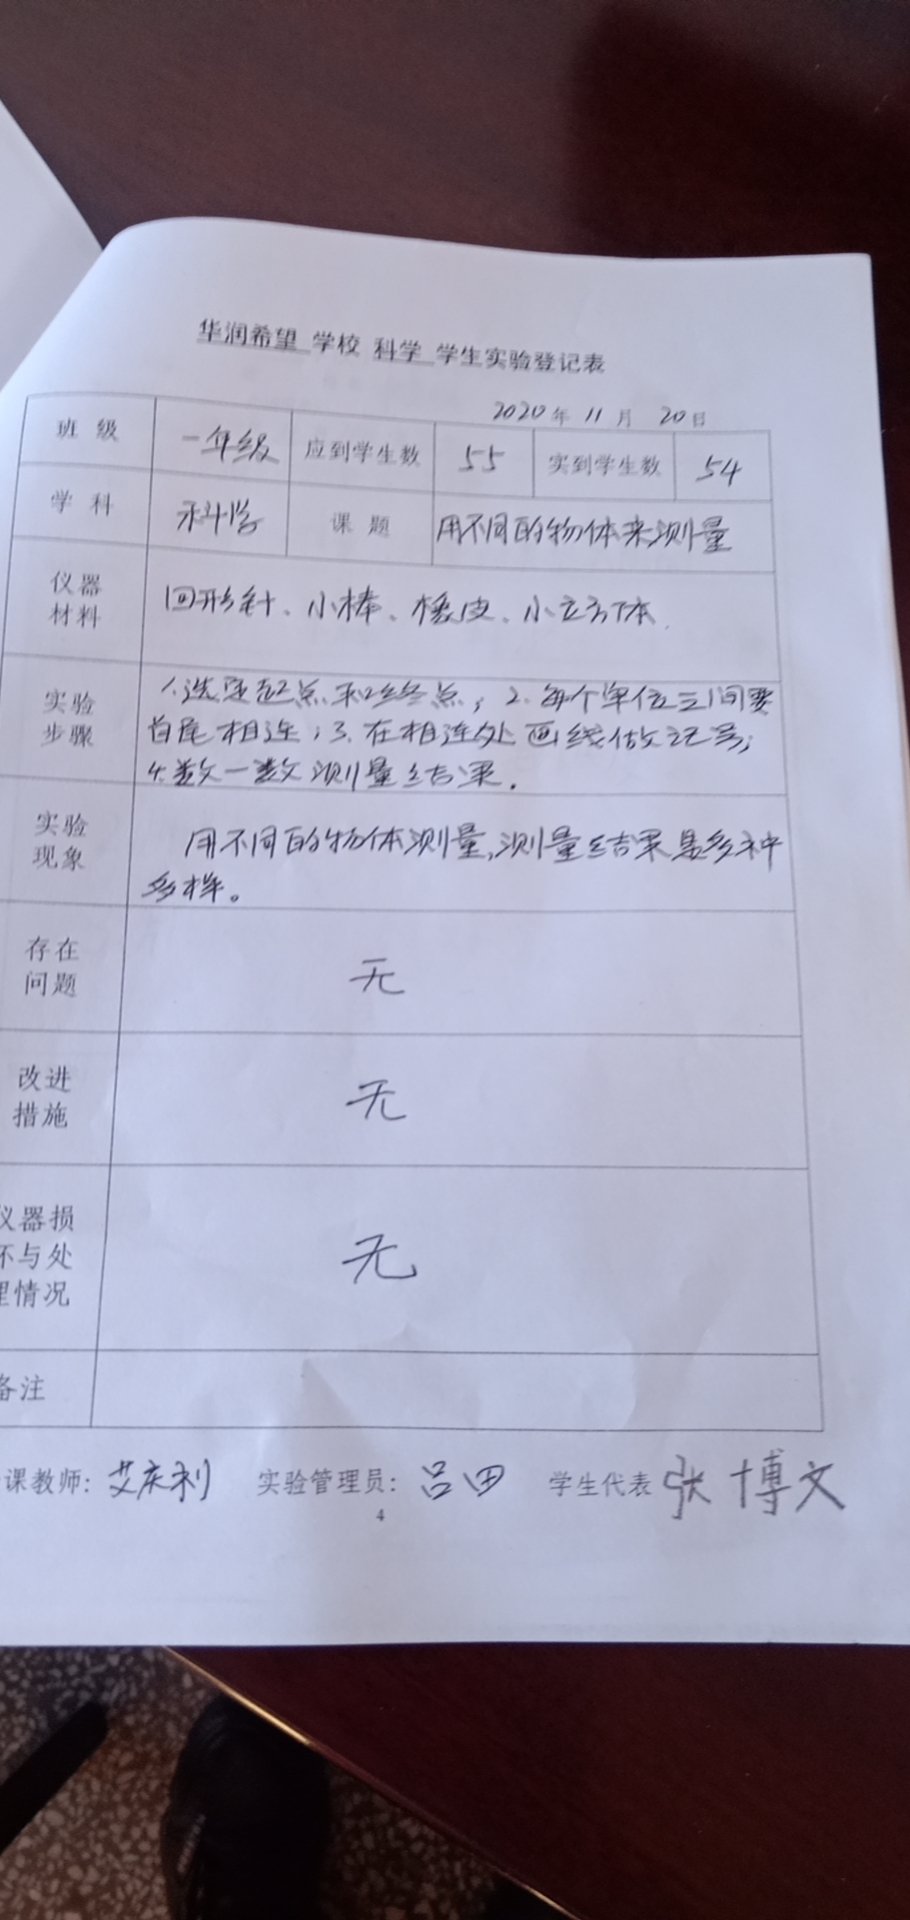 华润希望 学校 科学 学生实验登记表
2020年 11月 20日
班 级 一年级 应到学生数 55 实到学生数 54
学 科 科学 课 题 用不同的物体来测量
仪器
材料
回形针、小棒、橡皮、小立方体.
实验
步骤
1.选定起点和终点；2.每个单位之间要
首尾相连；3.在相连处画线做记号；
4.数一数测量结果.
实验
现象
用不同的物体测量,测量结果是多种
多样。
存在
问题
无
改进
措施
无
仪器损
坏与处
理情况
无
备注
课教师: 艾庆利 实验管理员: 吕田 学生代表 张博文
4